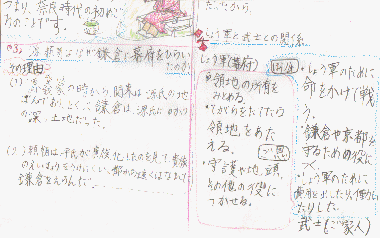 つまり、奈良時代の初め
のことです。
鎌倉に幕府をひらい
たのか
その理由
(1)
の時から、関東は源氏の地
ばんであり、とくに鎌倉は、源氏にゆかり
の深い土地だった。
(2) 頼朝は平氏が貴族化したのを見て貴族
のえいきょうをうけにくい、都から遠くはなれた
鎌倉をえらんだ。
だったから。
しょう軍と武士との関係
しょう軍(幕府)
・領地の所有を
みとめる。
・てがらをたてたら
領地をあた
える。
・守護や地頭
その他の役に
つかせる。
ご恩
・しょう軍のために
命をかけて戦
う。
・鎌倉や京都を
するための役に
つく。
・しょう軍のために
費用を出したり、働い
たりした。
武士(ご家人)